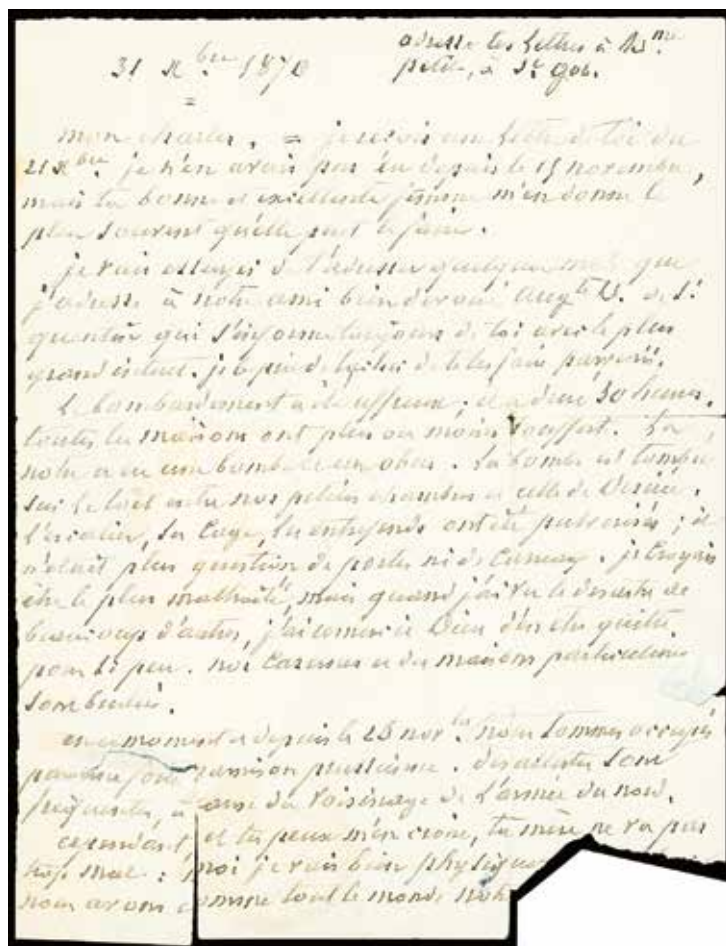 31 Xbre 1870
adresse tes lettres à Mme
petit, à St Gob.
mon charles, = je reçois une lettre de toi du
21 Xbre. je n'en avais pas eu depuis le 15 novembre,
mais ta bonne et excellente femme m'en donne le
plus souvent qu'elle peut le faire.
je vais essayer de t'adresser quelques mots que
j'adresse à notre ami bien dévoué Augte D. de St
quentin qui s'informe toujours de toi avec le plus
grand intérêt. je le prie de tâcher de te les faire parvenir.
Le bombardement a été affreux ; il a duré 30 heures.
toutes les maisons ont plus ou moins souffert. La
notre a eu une bombe et un obus. La bombe est tombée
sur le toit entre nos petites chambres et celle de Désirée.
l'escalier, sa cage, les entrefends ont été pulvérisés ; il
n'était plus question de portes ni de carreaux. je croyais
être le plus maltraité, mais quand j'ai vu le désastre de
beaucoup d'autres, j'ai remercié Dieu d'en être quitte
pour si peu. nos casernes et des maisons particulières
sont brûlées.
en ce moment et depuis le 28 novbre nous sommes occupés
par une forte garnison prussienne. des alertes sont
fréquentes, à cause du voisinage de l'armée du nord.
cependant, et tu peux m'en croire, ta mère ne va pas
trop mal : moi je vais bien
nous avons comme tout le monde